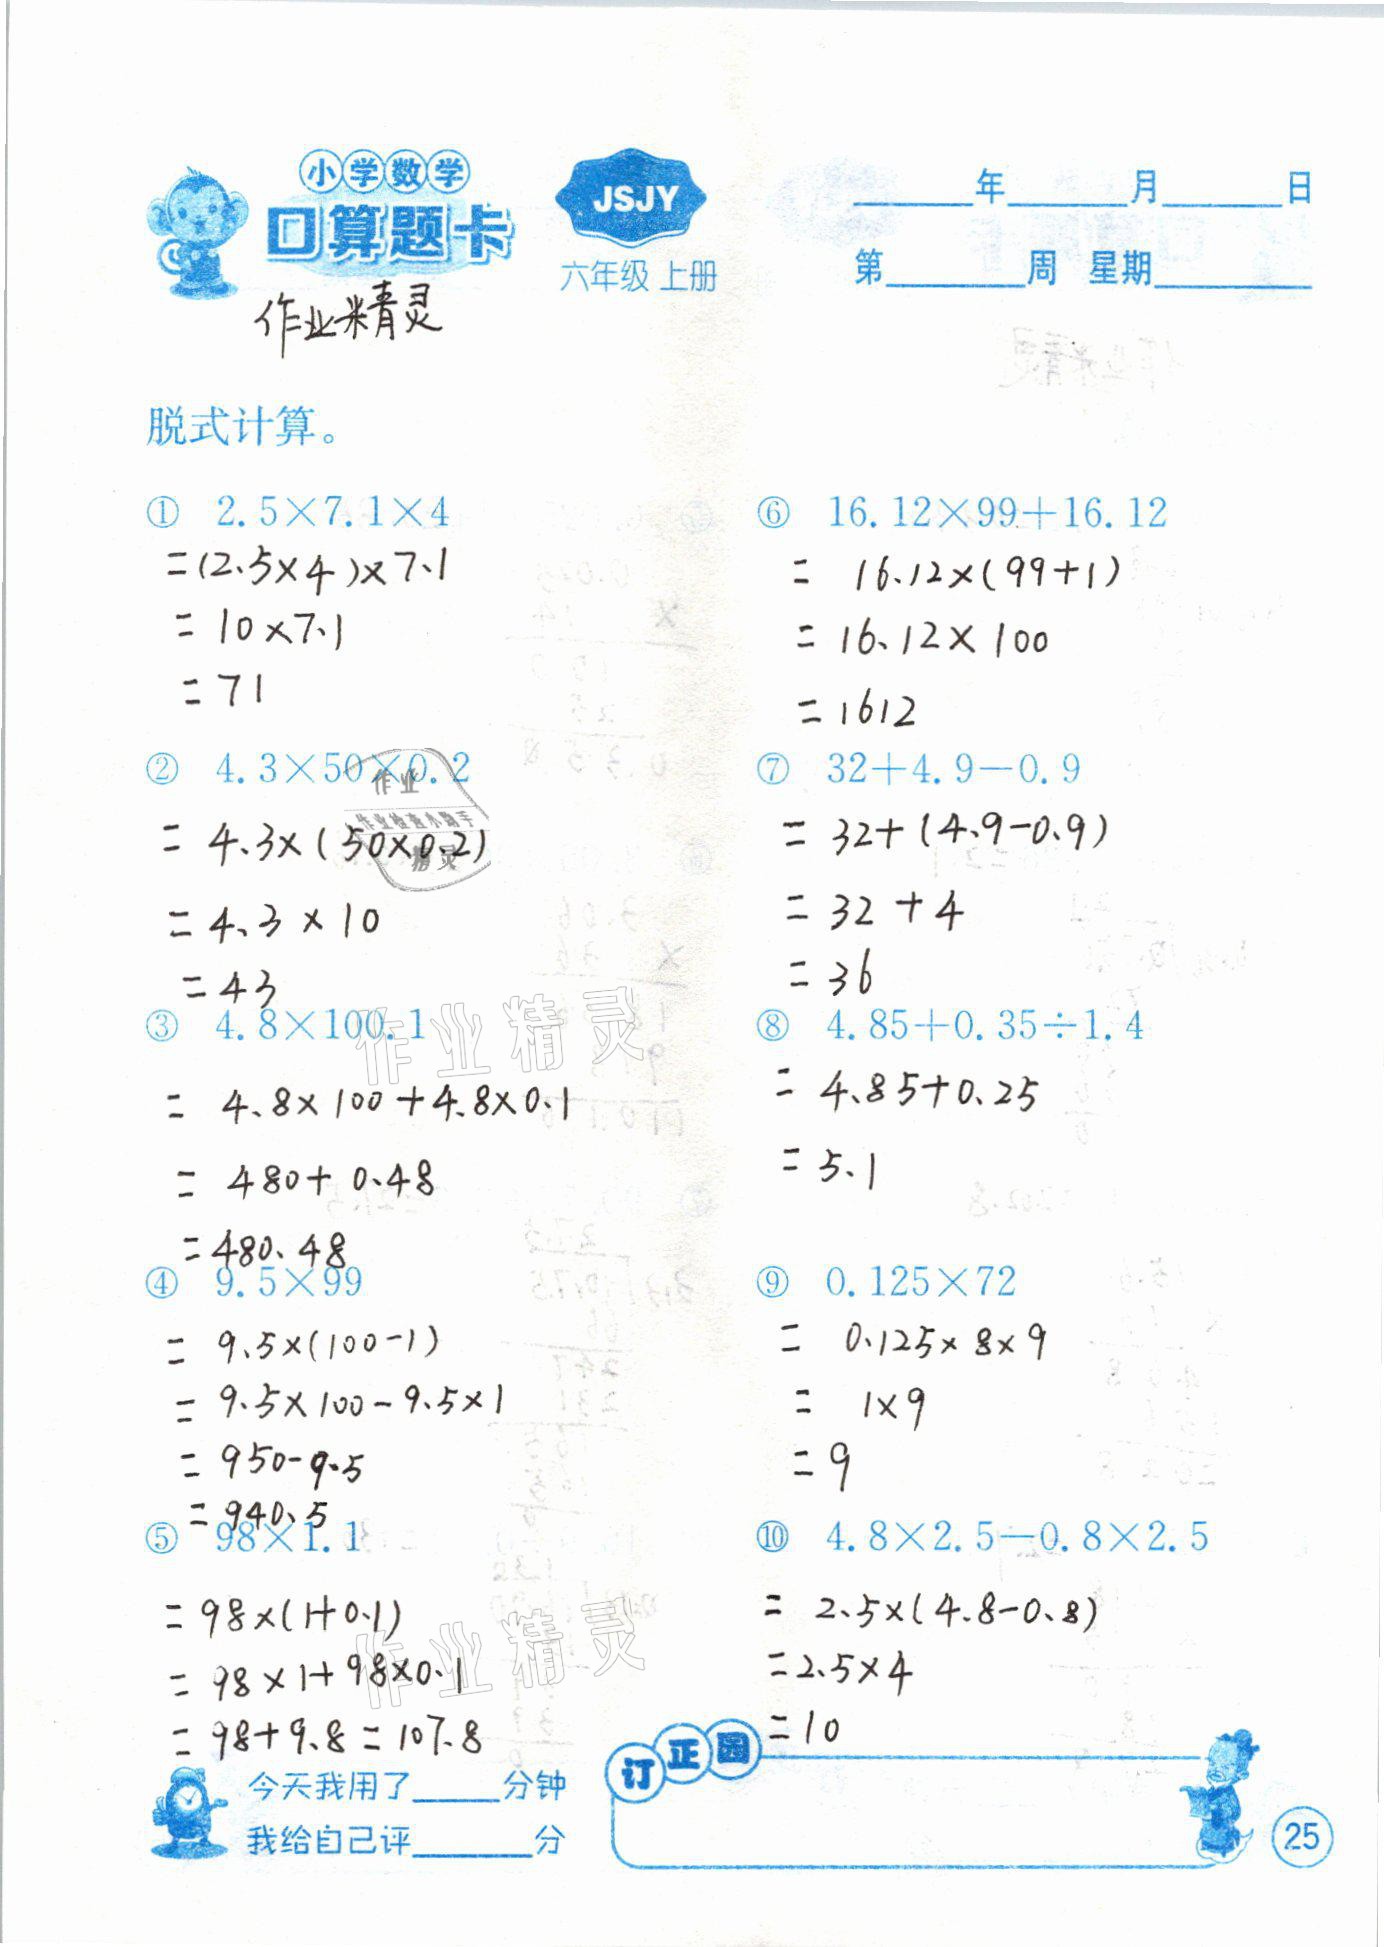 小学数学
口算题卡
JSJY
六年级 上册
____年____月____日
第____周 星期____
作业精灵
脱式计算。
① 2.5×7.1×4
=(2.5×4)×7.1
=10×7.1
=71
② 4.3×50×0.2
=4.3×(50×0.2)
=4.3×10
=43
③ 4.8×100.1
=4.8×100+4.8×0.1
=480+0.48
=480.48
④ 9.5×99
=9.5×(100-1)
=9.5×100-9.5×1
=950-9.5
=940.5
⑤ 98×1.1
=98×(1+0.1)
=98×1+98×0.1
=98+9.8=107.8
⑥ 16.12×99+16.12
=16.12×(99+1)
=16.12×100
=1612
⑦ 32+4.9-0.9
=32+(4.9-0.9)
=32+4
=36
⑧ 4.85+0.35÷1.4
=4.85+0.25
=5.1
⑨ 0.125×72
=0.125×8×9
=1×9
=9
⑩ 4.8×2.5-0.8×2.5
=2.5×(4.8-0.8)
=2.5×4
=10
作业
作业检查小助手
精灵
作业精灵
作业精灵
今天我用了____分钟
我给自己评____分
订正园
25